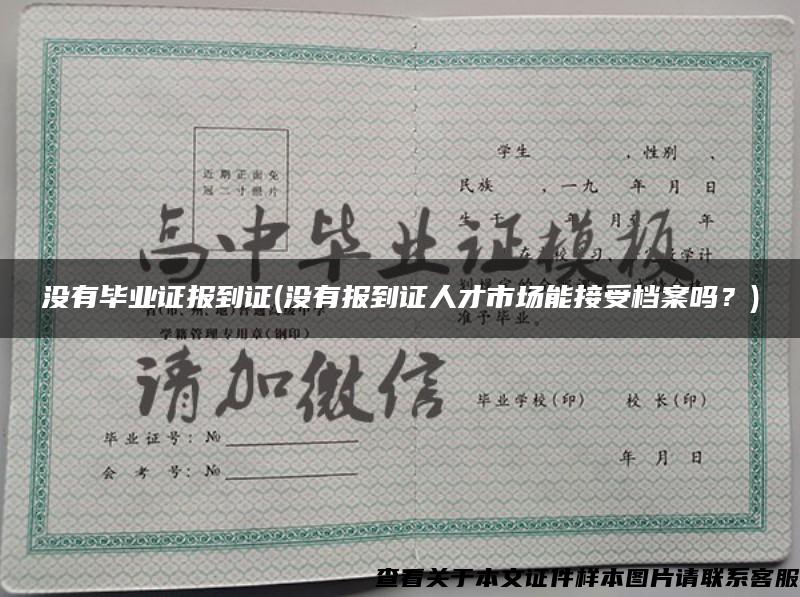 近期正面免
冠二寸照片
学生 ，性别 、
民族 ，一九 年 月 日
生于 年 月至 年
高中毕业证模板
没有毕业证报到证(没有报到证人才市场能接受档案吗？)
准予毕业。
学籍管理专用章(钢印)
请加微信
毕业学校(印) 校长(印)
毕业证号：№
会考号：№
年 月 日
查看关于本文证件样本图片请联系客服